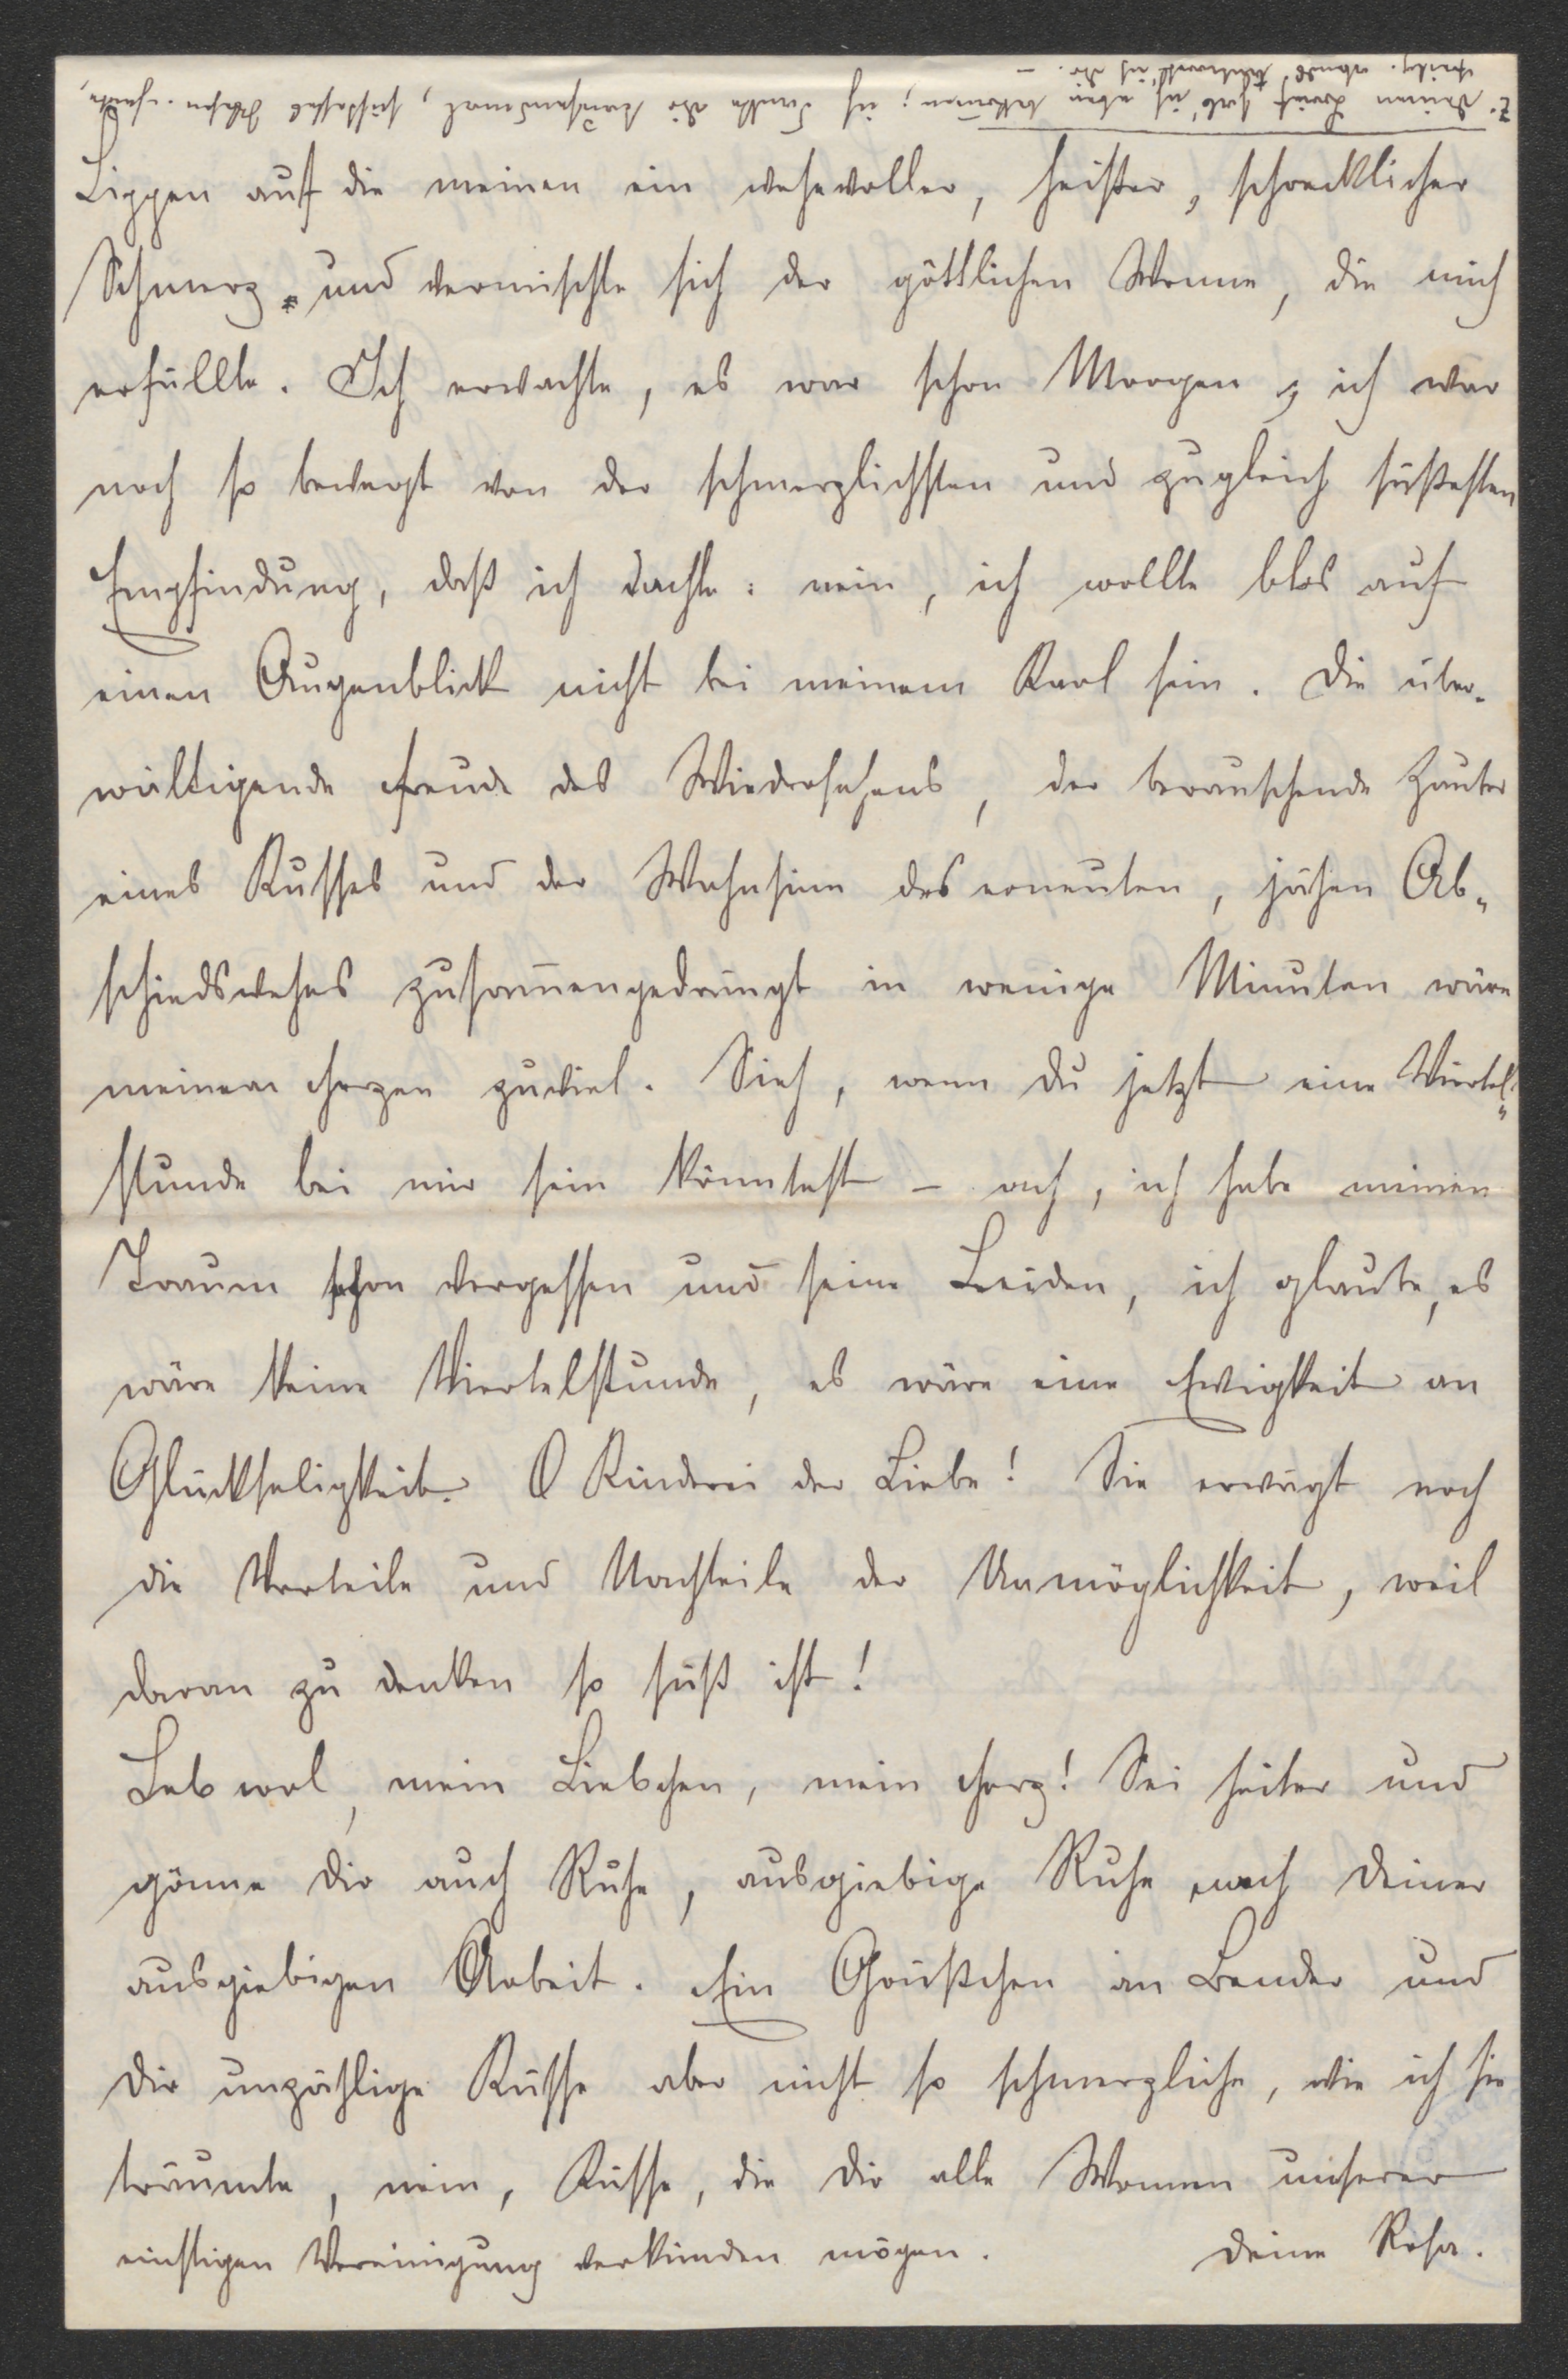 Z. Deinen Brief hab' ich eben bekommen; ich danke dir tausendmal, süßestes Wesen. Heute,
Freitag. abends antwort' ich dir. —
Lippen auf die meinen ein wehevoller, heißer, schrecklicher
Schmerz und vermischte sich der göttlichen Wonne, die mich
erfüllte. Ich erwachte, es war schon Morgen, ich war
noch so bewegt von der schmerzlichsten und zugleich süßesten
Empfindung, daß ich dachte: nein, ich wollte blos auf
einen Augenblick nicht bei meinem Karl sein. Die über-
wältigende Freude des Wiedersehens, der berauschende Zauber
eines Kusses und der Wahnsinn des erneuten, jähen Ab-
schiedswehes zusam̄engedrängt in wenige Minuten wäre
meinem Herzen zuviel. Sieh, wenn du jetzt eine Viertel-
stunde bei mir sein könntest – ach, ich habe meinen
Traum schon vergessen und seine Leiden, ich glaube, es
wäre keine Viertelstunde, es wäre eine Ewigkeit an
Glückseligkeit. O Kinderei der Liebe! Sie erwägt noch
die Vorteile und Nachteile der Unmöglichkeit, weil
daran zu denken so süß ist!
Leb wol, mein Liebchen, mein Herz! Sei heiter und
gönne dir auch Ruhe, ausgiebige Ruhe nach deiner
ausgiebigen Arbeit. Ein Grüßchen an Bender und
dir unzählige Küsse aber nicht so schmerzliche, wie ich sie
träumte, nein, Küsse, die dir alle Wonnen unserer
einstigen Vereinigung verkünden mögen. Deine Rosa.